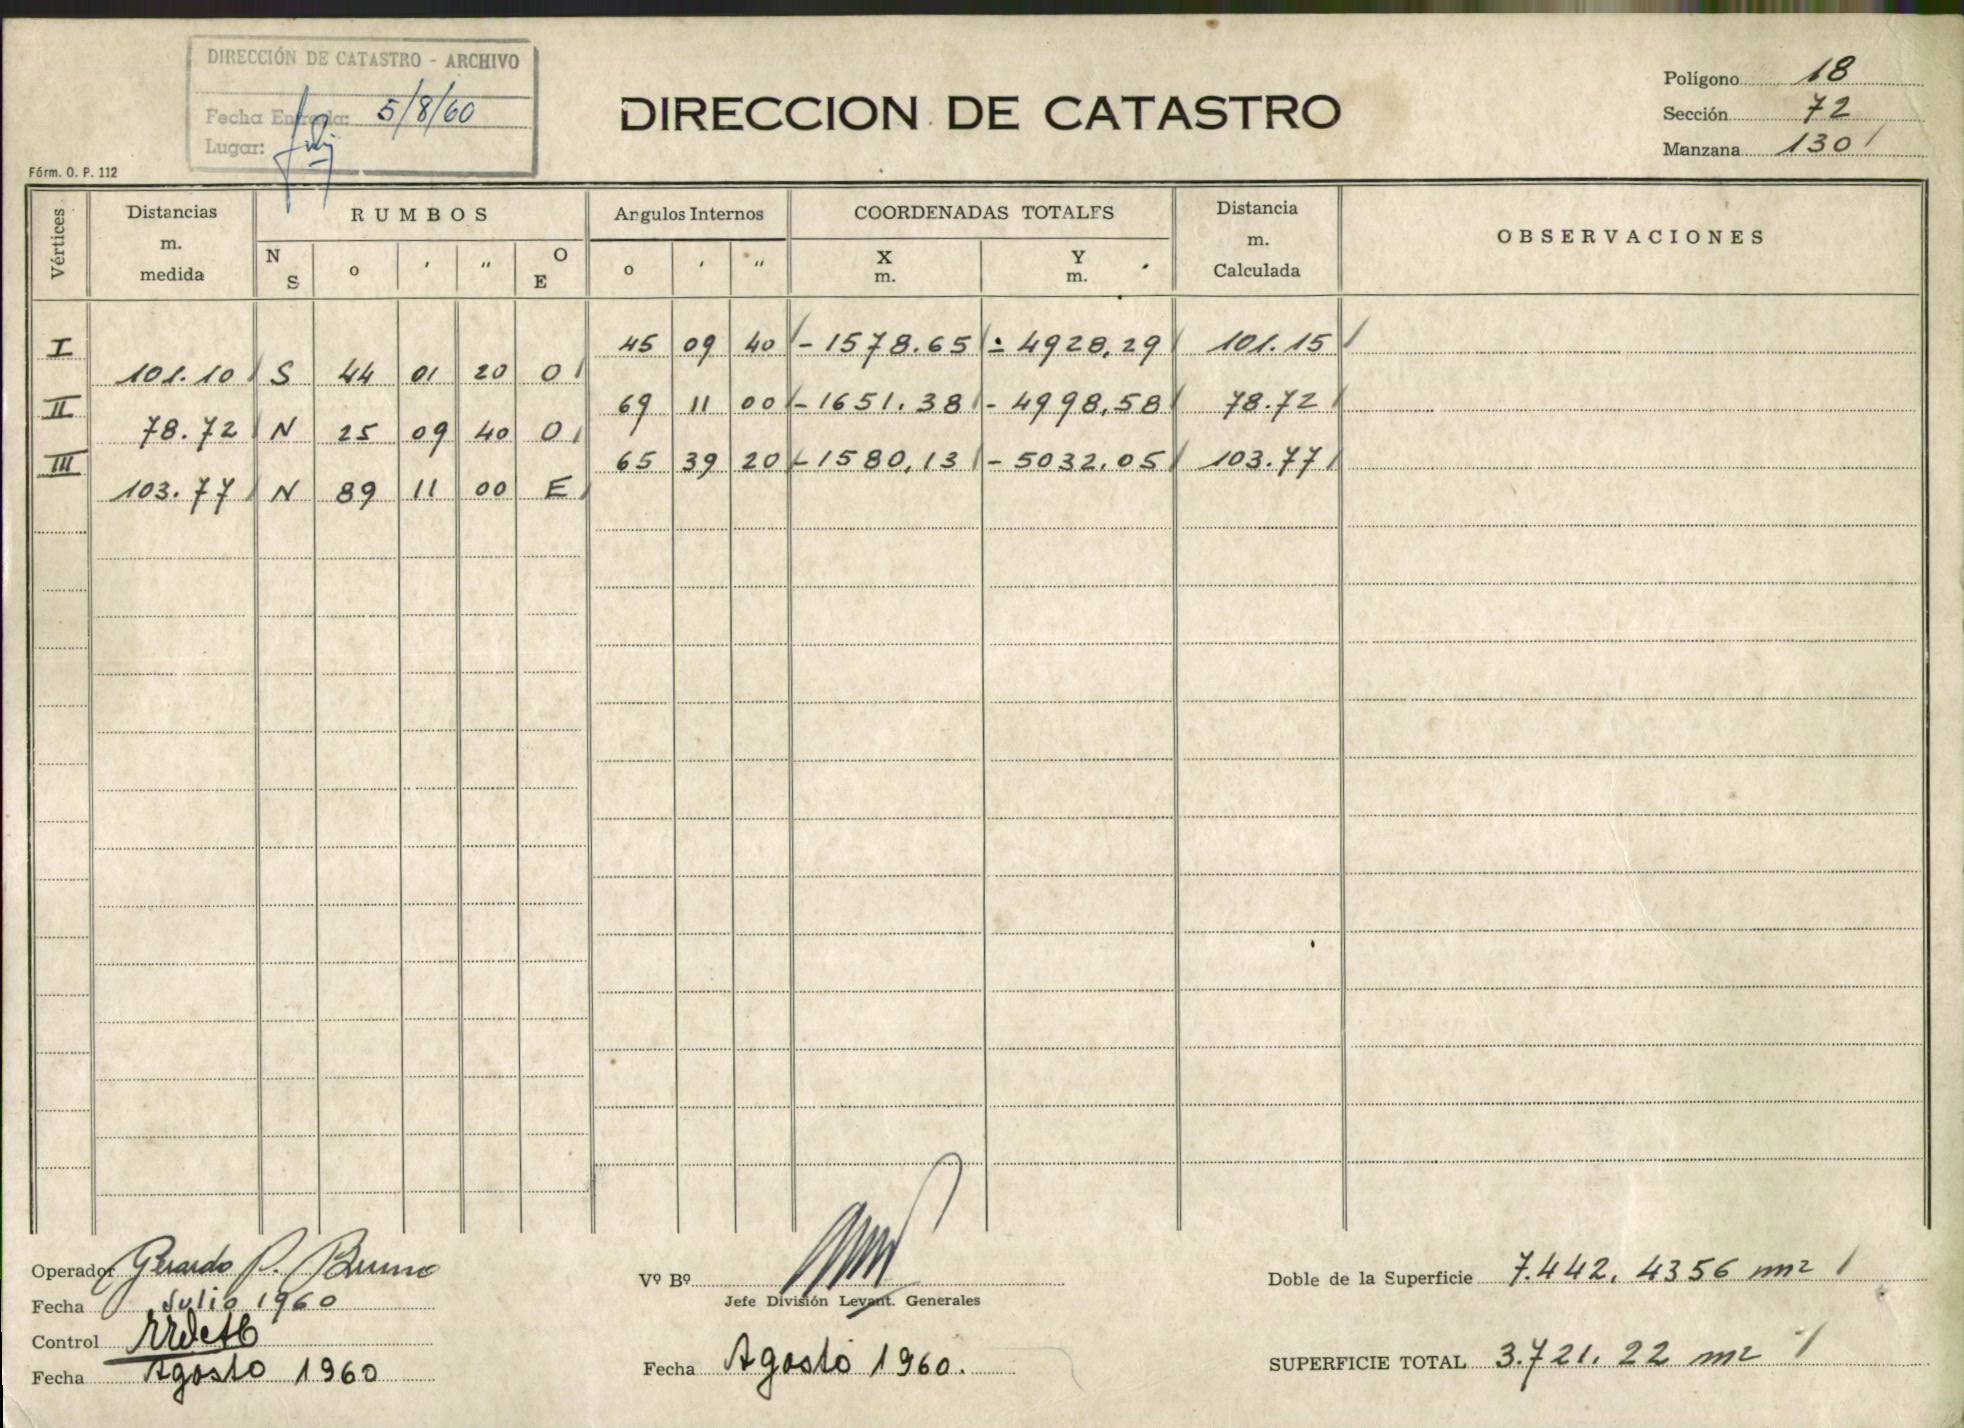 DIRECCIÓN DE CATASTRO - ARCHIVO
Fecha Entrada: 5/8/60
Lugar:
Fórm. O. P. 112
DIRECCION DE CATASTRO
Polígono 18
Sección 72
Manzana 130
Vértices Distancias m. medida RUMBOS Angulos Internos COORDENADAS TOTALES Distancia m. Calculada OBSERVACIONES
N S o ' " O E o ' " X m. Y m.
I 45 09 40 - 1578.65 - 4928,29 101.15
101.10 S 44 01 20 O
II 69 11 00 - 1651.38 - 4998,58 78.72
78.72 N 25 09 40 O
III 65 39 20 - 1580,13 - 5032.05 103.77
103.77 N 89 11 00 E
Operador Gerardo P. Bruno
Fecha Julio 1960
Control
Fecha Agosto 1960
Vº Bº
Jefe División Levant. Generales
Fecha Agosto 1960.
Doble de la Superficie 7.442,4356 m2
SUPERFICIE TOTAL 3.721.22 m2